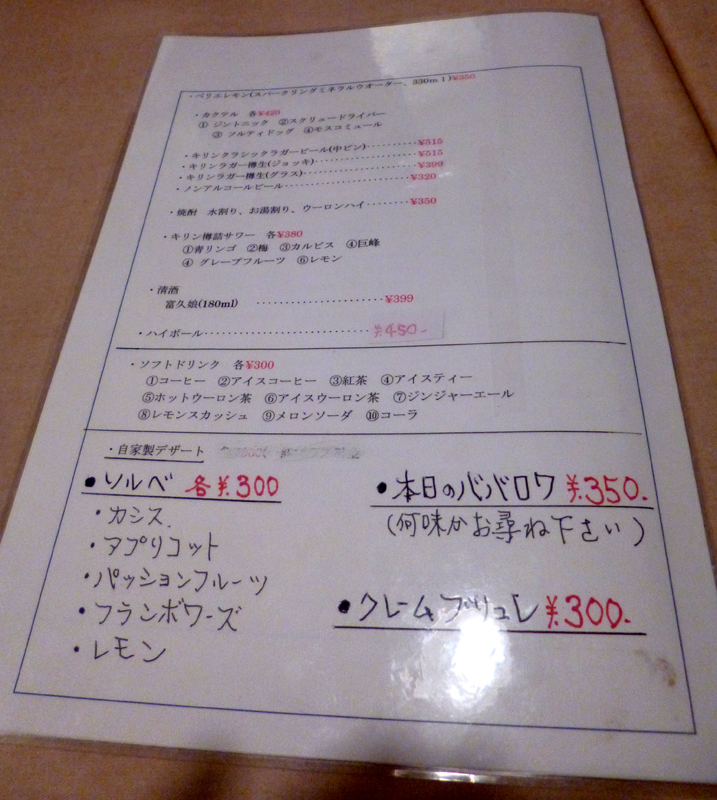 ・ペリエレモン(スパークリングミネラルウオーダー、330ml)¥350
・カクテル 各¥420
① ジントニック ②スクリュードライバー
③ ソルティドッグ ④モスコミュール
・キリンクラシックラガービール(中ビン)‥‥‥‥¥515
・キリンラガー樽生(ジョッキ)‥‥‥‥‥‥¥515
・キリンラガー樽生(グラス)‥‥‥‥‥‥¥399
・ノンアルコールビール‥‥‥‥‥‥‥‥¥320
・焼酎 水割り、お湯割り、ウーロンハイ‥‥‥¥350
・キリン樽詰サワー 各¥380
①青リンゴ ②梅 ③カルピス ④巨峰
④ グレープフルーツ ⑥レモン
・清酒
富久娘(180ml) ‥‥‥‥‥‥‥‥‥‥¥399
・ハイボール‥‥‥‥‥‥‥‥‥‥‥‥¥450-
・ソフトドリンク 各¥300
①コーヒー ②アイスコーヒー ③紅茶 ④アイスティー
⑤ホットウーロン茶 ⑥アイスウーロン茶 ⑦ジンジャーエール
⑧レモンスカッシュ ⑨メロンソーダ ⑩コーラ
・自家製デザート
●ソルベ 各¥300
・カシス
・アプリコット
・パッションフルーツ
・フランボワーズ
・レモン
●本日のババロワ ¥350.
(何味かお尋ね下さい)
●クレームブリュレ ¥300.